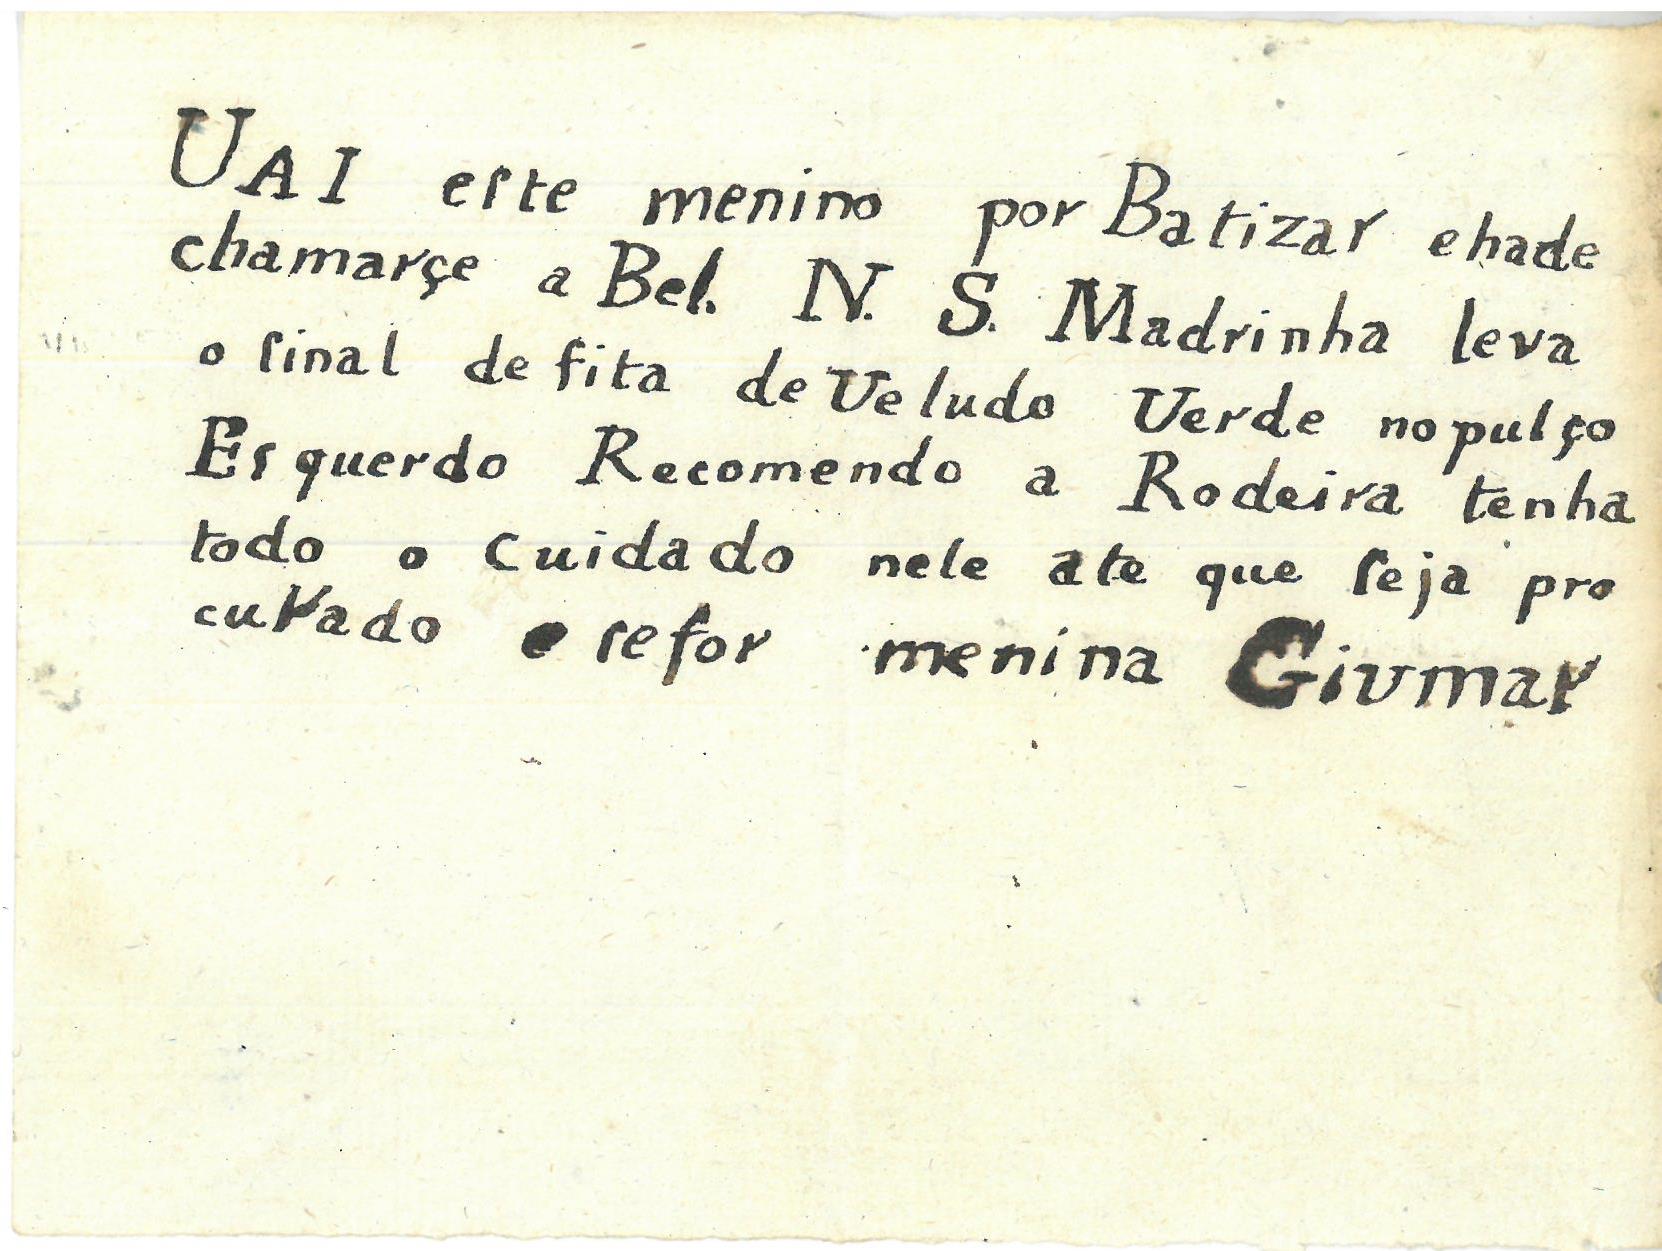 UAI eſte menino por Batizar ehade
chamarçe a Bel. N. S. Madrinha leva
o ſinal de fita de Veludo Verde no pulço
Eſquerdo Recomendo a Rodeira tenha
todo o cuidado nele ate que ſeja pro
curado e ſefor menina Giumar